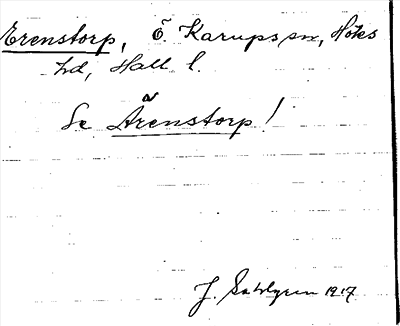 Erenstorp, Ö. Karups sn, Höks
hd, Hall. l.
Se Ärenstorp!
J. Sahlgren 1917